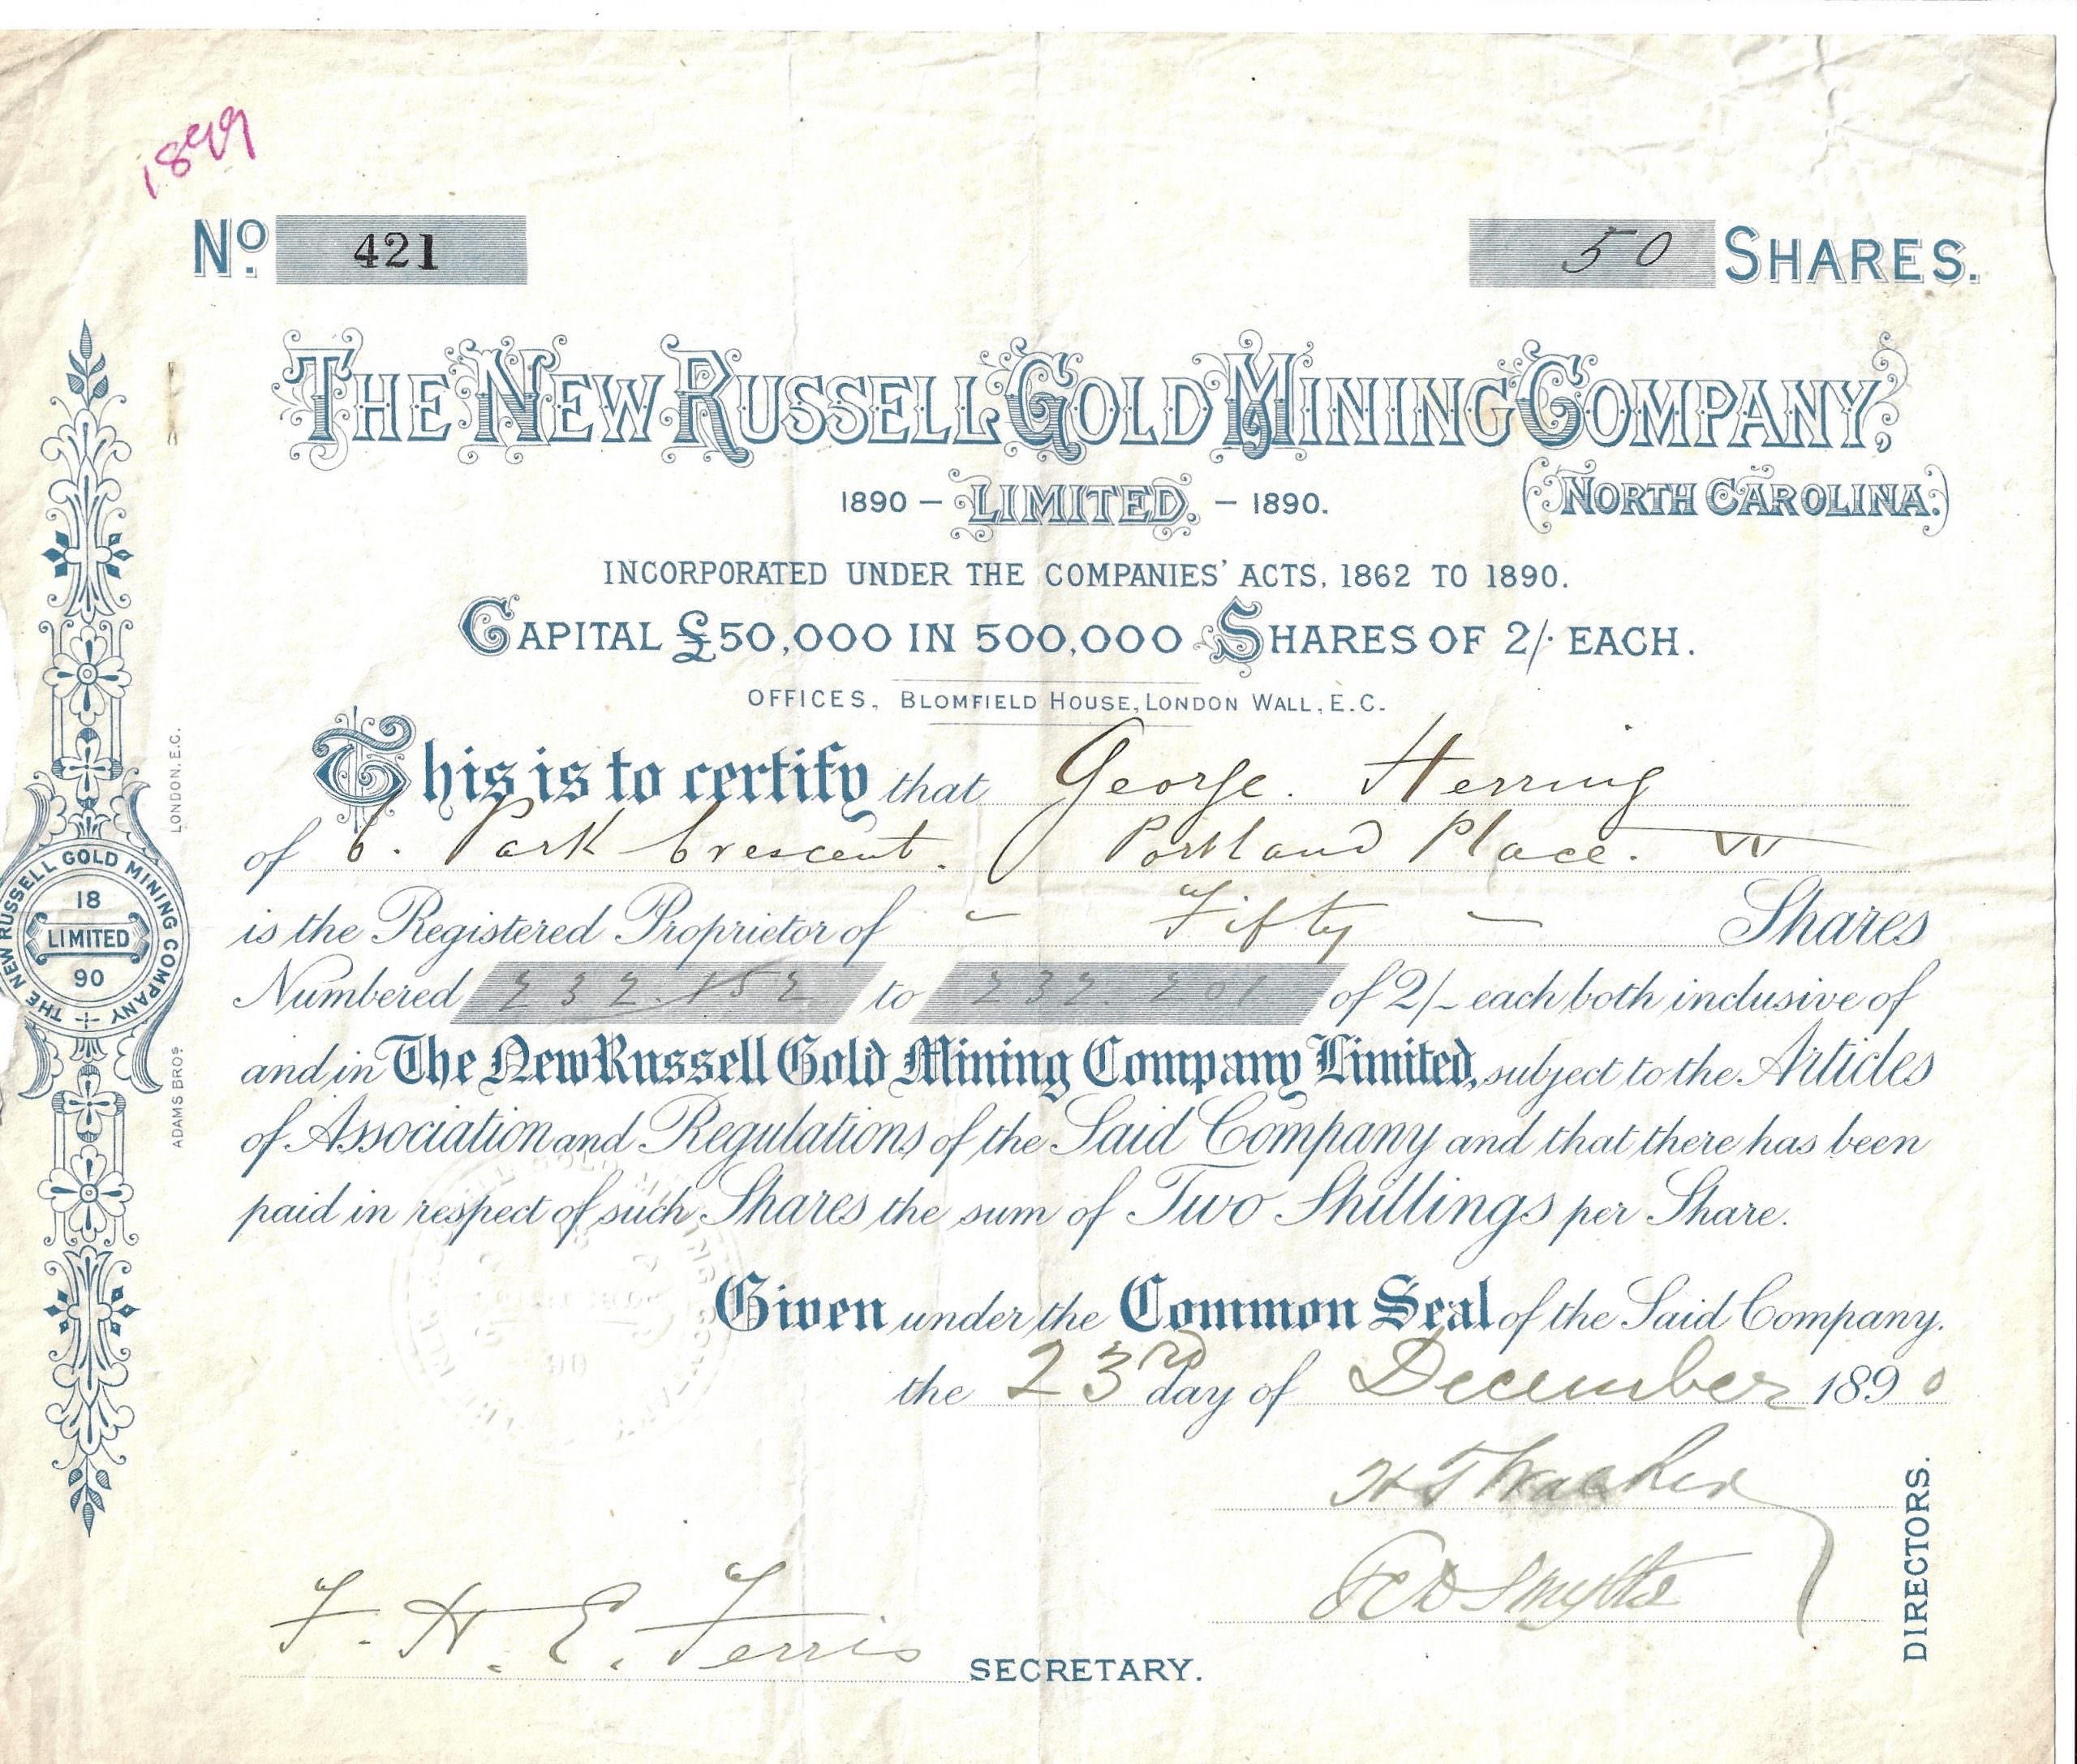 1899
No. 421
50 SHARES.
THE NEW RUSSELL GOLD MINING COMPANY,
1890 – LIMITED. – 1890.
(NORTH CAROLINA.)
INCORPORATED UNDER THE COMPANIES' ACTS, 1862 TO 1890.
CAPITAL £50,000 IN 500,000 SHARES OF 2/- EACH.
OFFICES, BLOMFIELD HOUSE, LONDON WALL, E.C.
This is to certify that George. Herring
of 6. Park Crescent. Portland Place. W
is the Registered Proprietor of - Fifty - Shares
Numbered 232.152 to 232 201 of 2/- each both inclusive of
and in The New Russell Gold Mining Company Limited, subject to the Articles
of Association and Regulations of the Said Company and that there has been
paid in respect of such Shares the sum of Two Shillings per Share.
Given under the Common Seal of the Said Company.
the 23rd day of December 1890
Smythe
DIRECTORS.
F. H. E. Ferris SECRETARY.
THE NEW RUSSELL GOLD MINING COMPANY
18
LIMITED
90
ADAMS BROS LONDON, E.C.